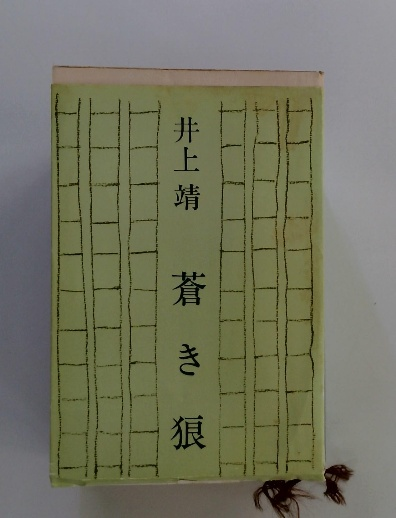 井上靖 蒼き狼